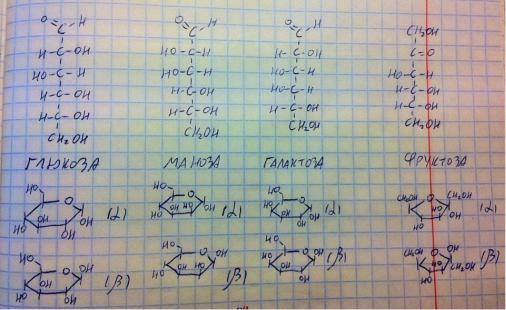 O H O H O H CH₂OH
C C C C=O
H-C-OH HO-C-H H-C-OH HO-C-H
HO-C-H HO-C-H HO-C-H H-C-OH
H-C-OH H-C-OH HO-C-H H-C-OH
H-C-OH H-C-OH H-C-OH CH₂OH
CH₂OH CH₂OH CH₂OH
ГЛЮКОЗА МАНОЗА ГАЛАКТОЗА ФРУКТОЗА
HO O OH HO OH OH (α)
HO O OH OH HO OH (α)
HO O HO OH OH OH (α)
CH₂OH O CH₂OH HO OH OH (α)
HO O OH OH HO OH (β)
HO O OH OH HO HO (β)
HO O OH HO OH OH (β)
CH₂OH O OH HO CH₂OH OH (β)